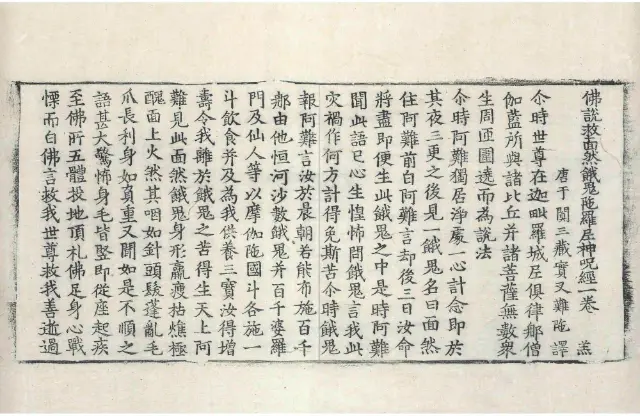 佛說救面然餓鬼陁羅尼神呪經卷 羔
唐于闐三藏實叉難陁 譯
尒時世尊在迦毗羅城尼俱律那僧
伽藍所與諸比丘并諸菩薩無數衆
生周迊圍遶而為說法
尒時阿難獨居淨處一心計念即於
其夜三更之後見一餓鬼名曰面然
住阿難前白阿難言却後三日汝命
將盡即便生此餓鬼之中是時阿難
聞此語已心生惶怖問餓鬼言我此
灾禍作何方計得免斯苦尒時餓鬼
報阿難言汝於晨朝若能布施百千
那由他恒河沙數餓鬼并百千婆羅
門及仙人等以摩伽陁國斗各施一
斗飲食并及為我供養三寶汝得增
壽令我離於餓鬼之苦得生天上阿
難見此面然餓鬼身形羸瘦枯燋極
醜面上火然其咽如針頭髮蓬亂毛
爪長利身如負重又聞如是不順之
語甚大驚怖身毛皆竪即從座起疾
至佛所五體投地頂礼佛足身心戰
慄而白佛言救我世尊救我善逝過